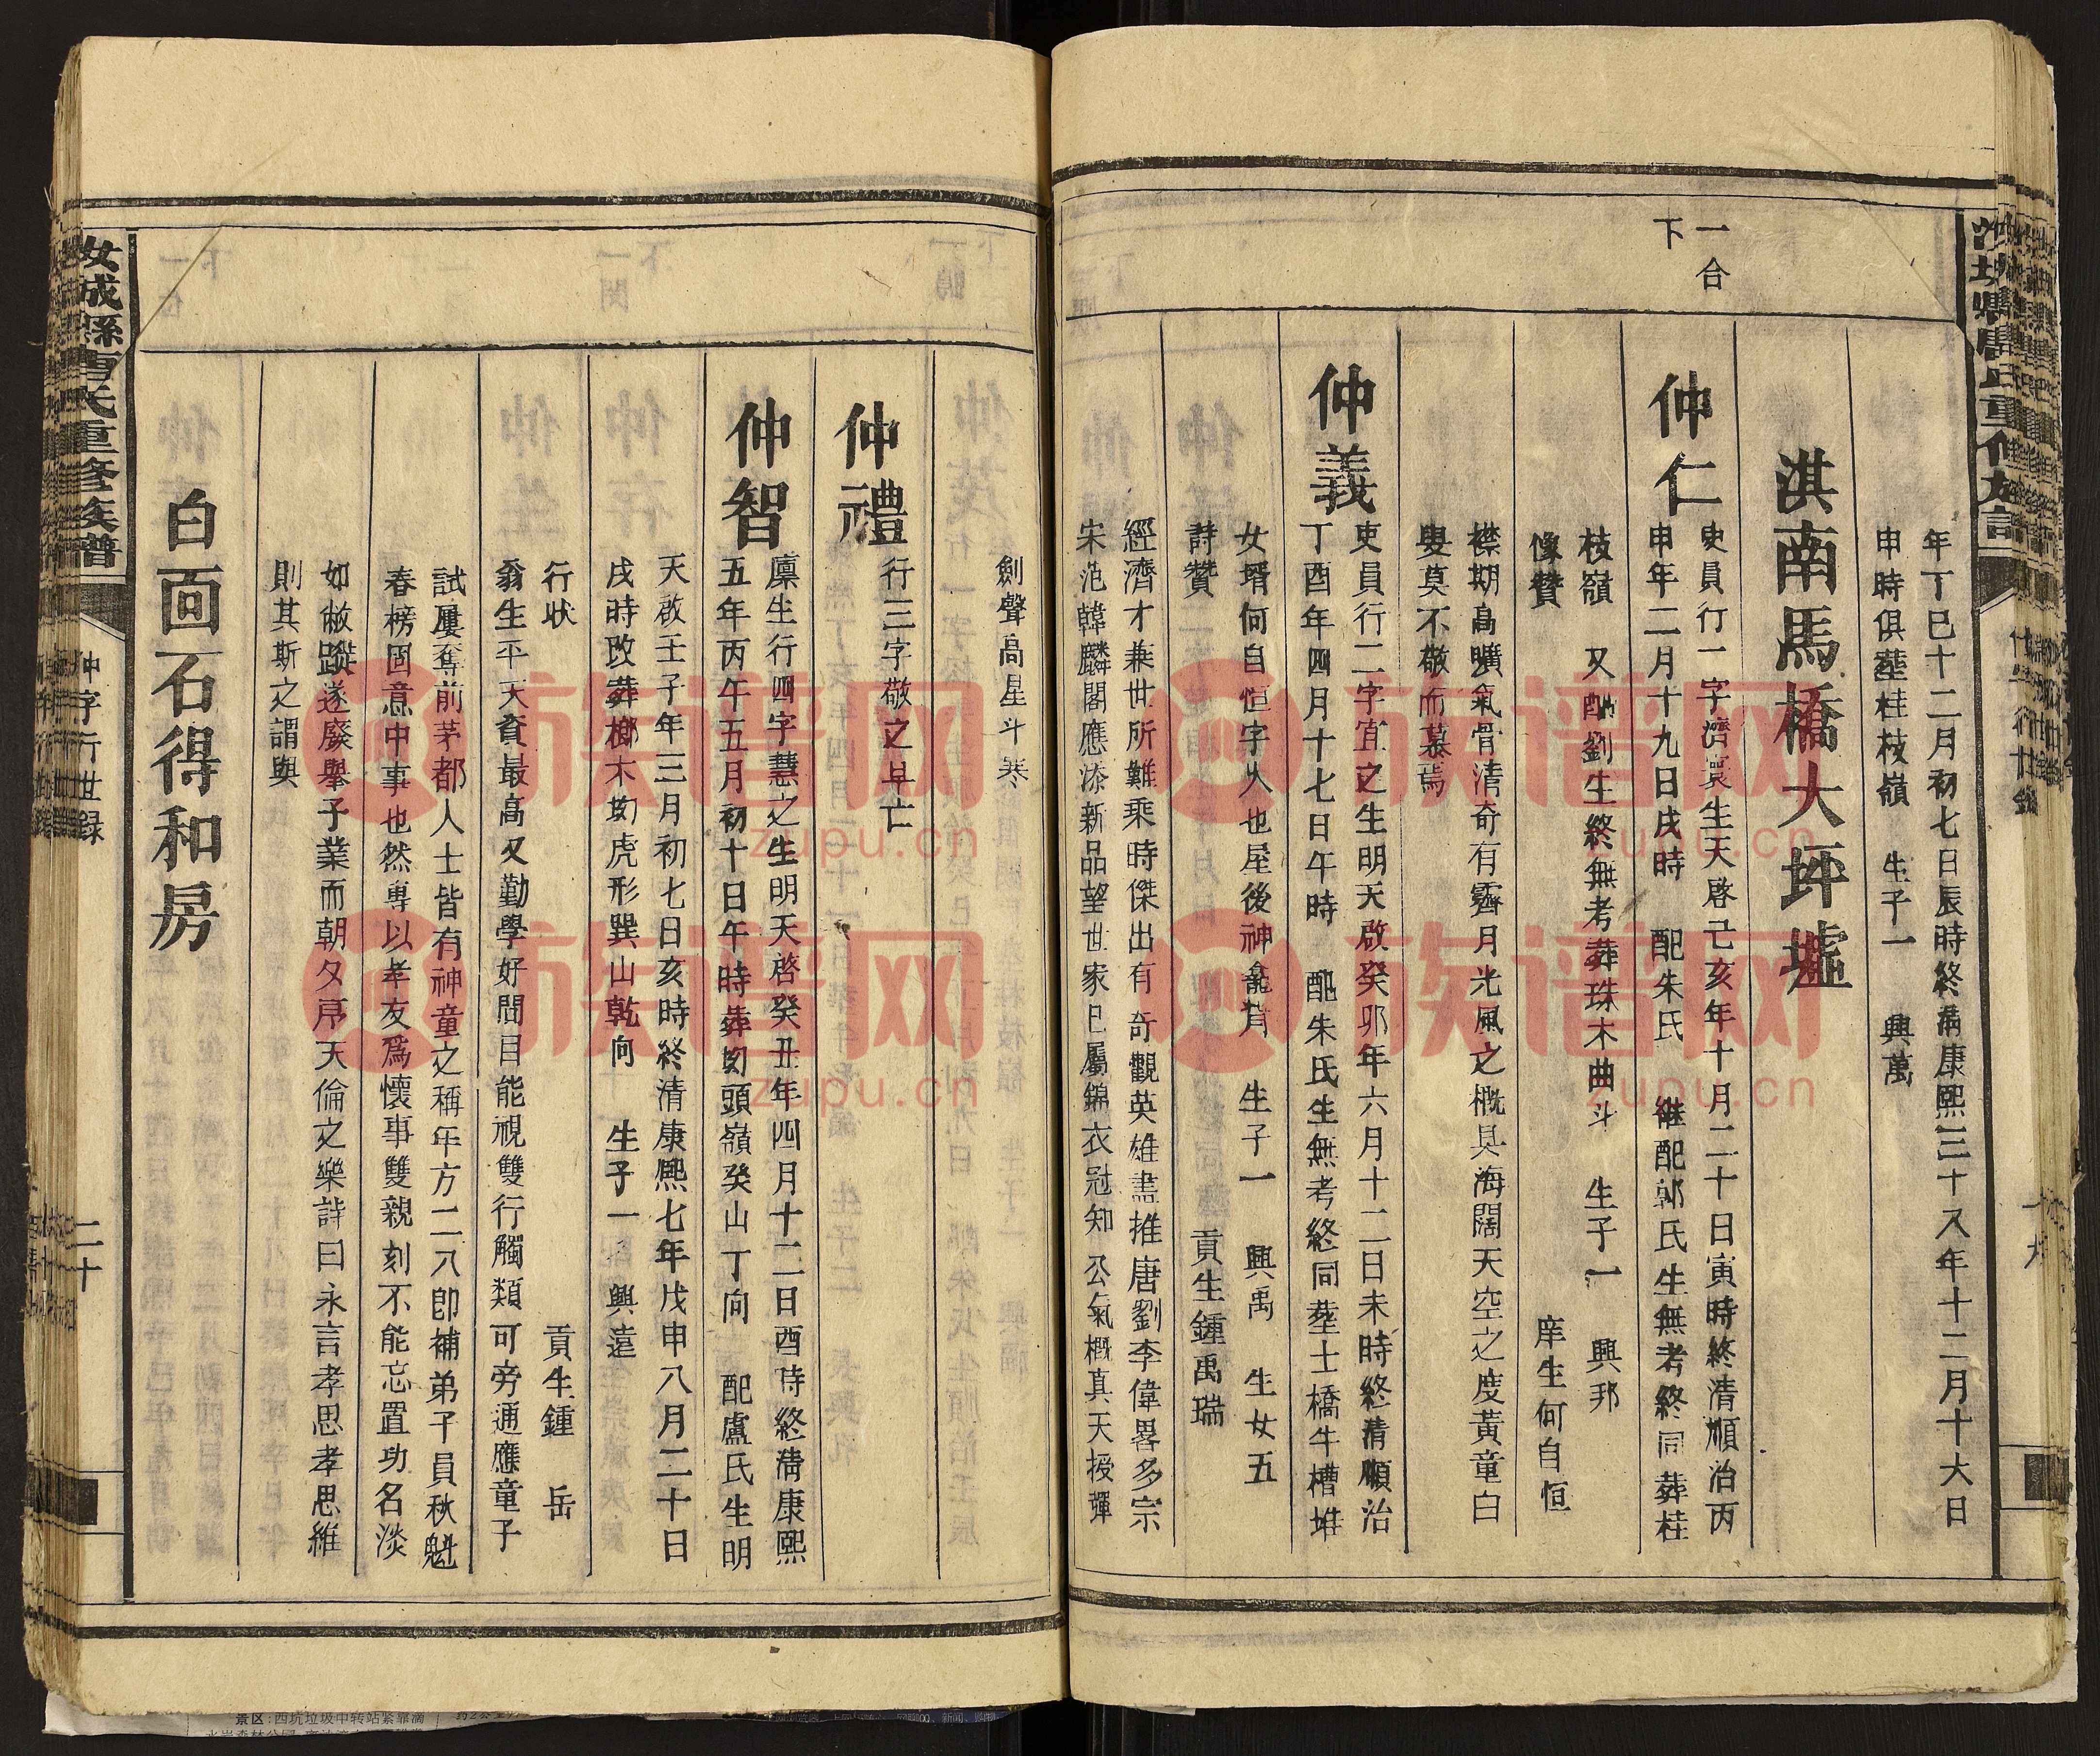 年丁巳十二月初七日辰時終清康熙三十八年十二月十六日
申時俱塟桂枝嶺　生子一　興萬
淇南馬橋大坪墟
一合下
仲仁
吏員行一字濟寰生天啓己亥年十月二十日寅時終清順治丙
申年二月十九日戌時　配朱氏　継配郭氏生無考終同葬桂
枝嶺　又酬劉生終無考葬珠木曲斗　生子一　興邦
像贊　庠生何自恒
襟期高曠氣骨清奇有霽月光風之概具海闊天空之度黃童白
叟莫不敬而慕焉
仲義
吏員行二字宜之生明天啟癸卯年六月十二日未時終清順治
丁酉年四月十七日午時　配朱氏生無考終同塟士橋牛槽堆
女壻何自恒字久也屋後神龕背　生子一　興禹　生女五
詩贊　貢生鍾禹瑞
經濟才兼世所難乘時傑出有奇觀英雄盡推唐劉李偉畧多宗
宋范韓麟閣應添新品望世家已屬錦衣冠知公氣概真天授彈
劍聲高星斗寒
仲禮
行三字敬之早亡
仲智
廩生行四字慧之生明天啓癸丑年四月十二日酉時終清康熙
五年丙午五月初十日午時葬㘭頭嶺癸山丁向　配盧氏生明
天啟壬子年三月初七日亥時終清康熙七年戊申八月二十日
戌時改葬榔木㘭虎形巽山乾向　生子一　興遠
行状　貢生鍾　岳
翁生平天資最高又勤學好問目能視雙行觸類可旁通應童子
試屢奪前茅都人士皆有神童之稱年方二八卽補弟子員秋魁
春榜固意中事也然專以孝友爲懷事雙親刻不能忘置功名淡
如敝蹝遂廢舉子業而朝夕序天倫之樂詩曰永言孝思孝思維
則其斯之謂與
白面石得和房
汝城縣　氏重修族譜
仲字行世録
二十
族谱网
zupu.cn
族谱网
zupu.cn
族谱网
zupu.cn
族谱网
zupu.cn